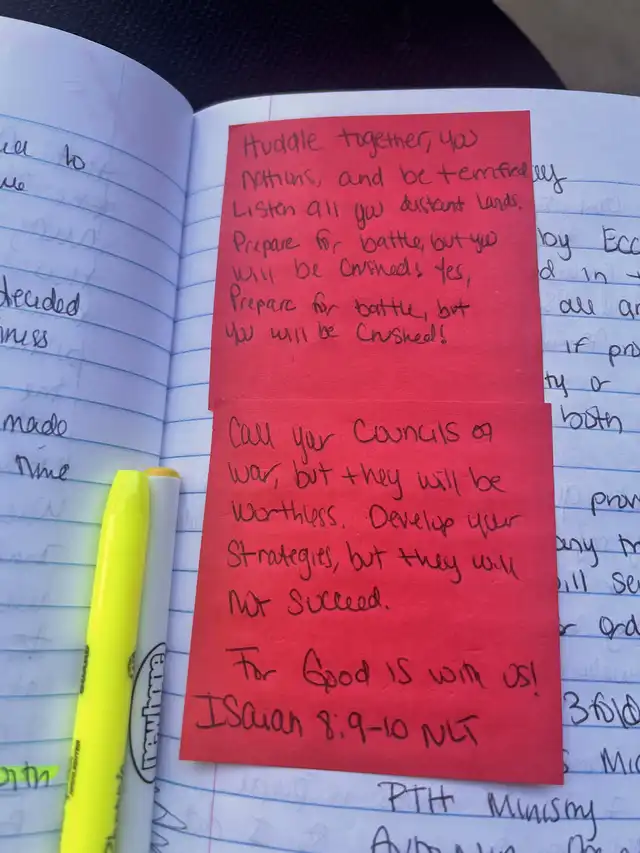 to
decided
made
time
Huddle together, you
nations, and be terrified
Listen all you distant lands.
Prepare for battle, but you
will be crushed! Yes,
Prepare for battle, but
you will be crushed!
Call your Councils of
war, but they will be
worthless. Develop your
Strategies, but they will
not succeed.
For Good is with us!
Isaiah 8:9-10 NLT
by Ecc
in
all
if pro
or
both
prov
any
ill se
ord
3fold
PTH Ministry